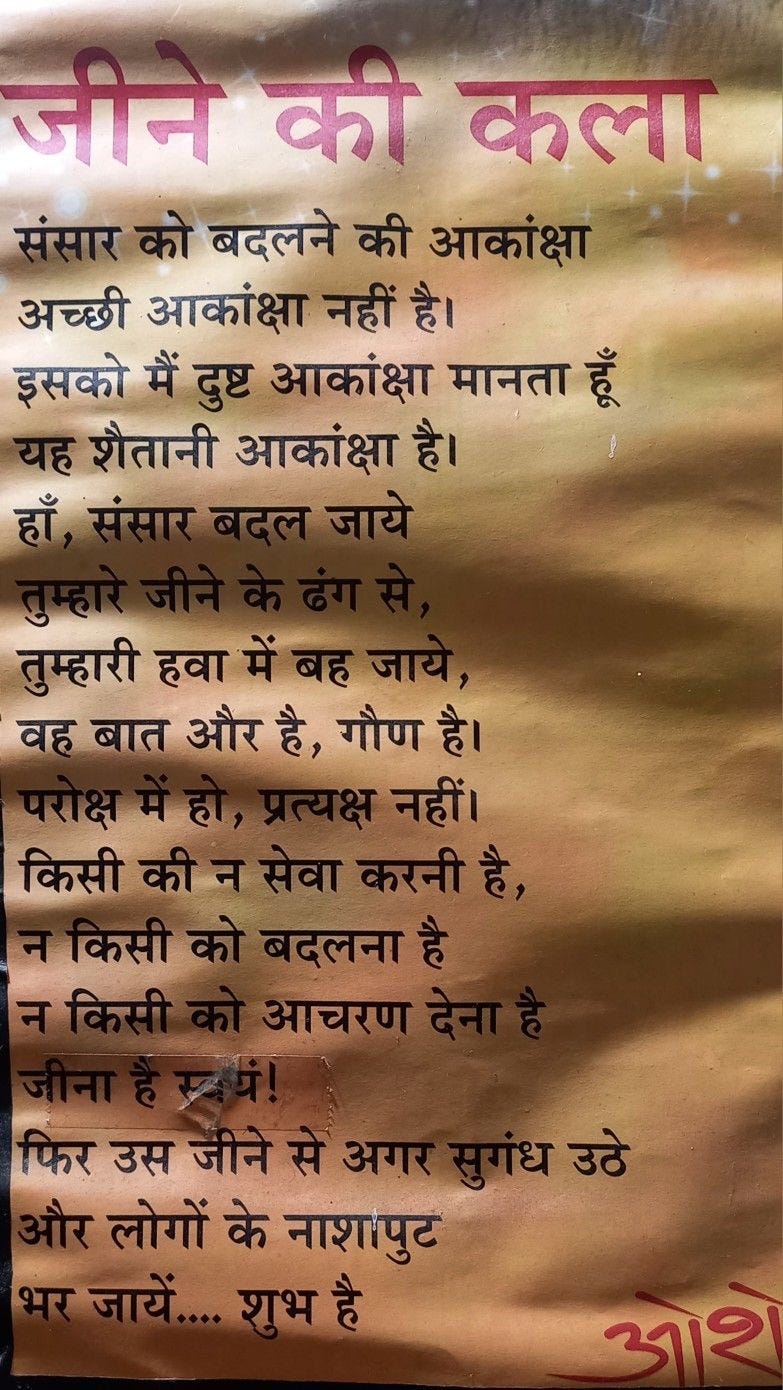 जीने की कला
संसार को बदलने की आकांक्षा
अच्छी आकांक्षा नहीं है।
इसको मैं दुष्ट आकांक्षा मानता हूँ
यह शैतानी आकांक्षा है।
हाँ, संसार बदल जाये
तुम्हारे जीने के ढंग से,
तुम्हारी हवा में बह जाये,
वह बात और है, गौण है।
परोक्ष में हो, प्रत्यक्ष नहीं।
किसी की न सेवा करनी है,
न किसी को बदलना है
न किसी को आचरण देना है
जीना है स्वयं!
फिर उस जीने से अगर सुगंध उठे
और लोगों के नाशापुट
भर जायें.... शुभ है
ओशो